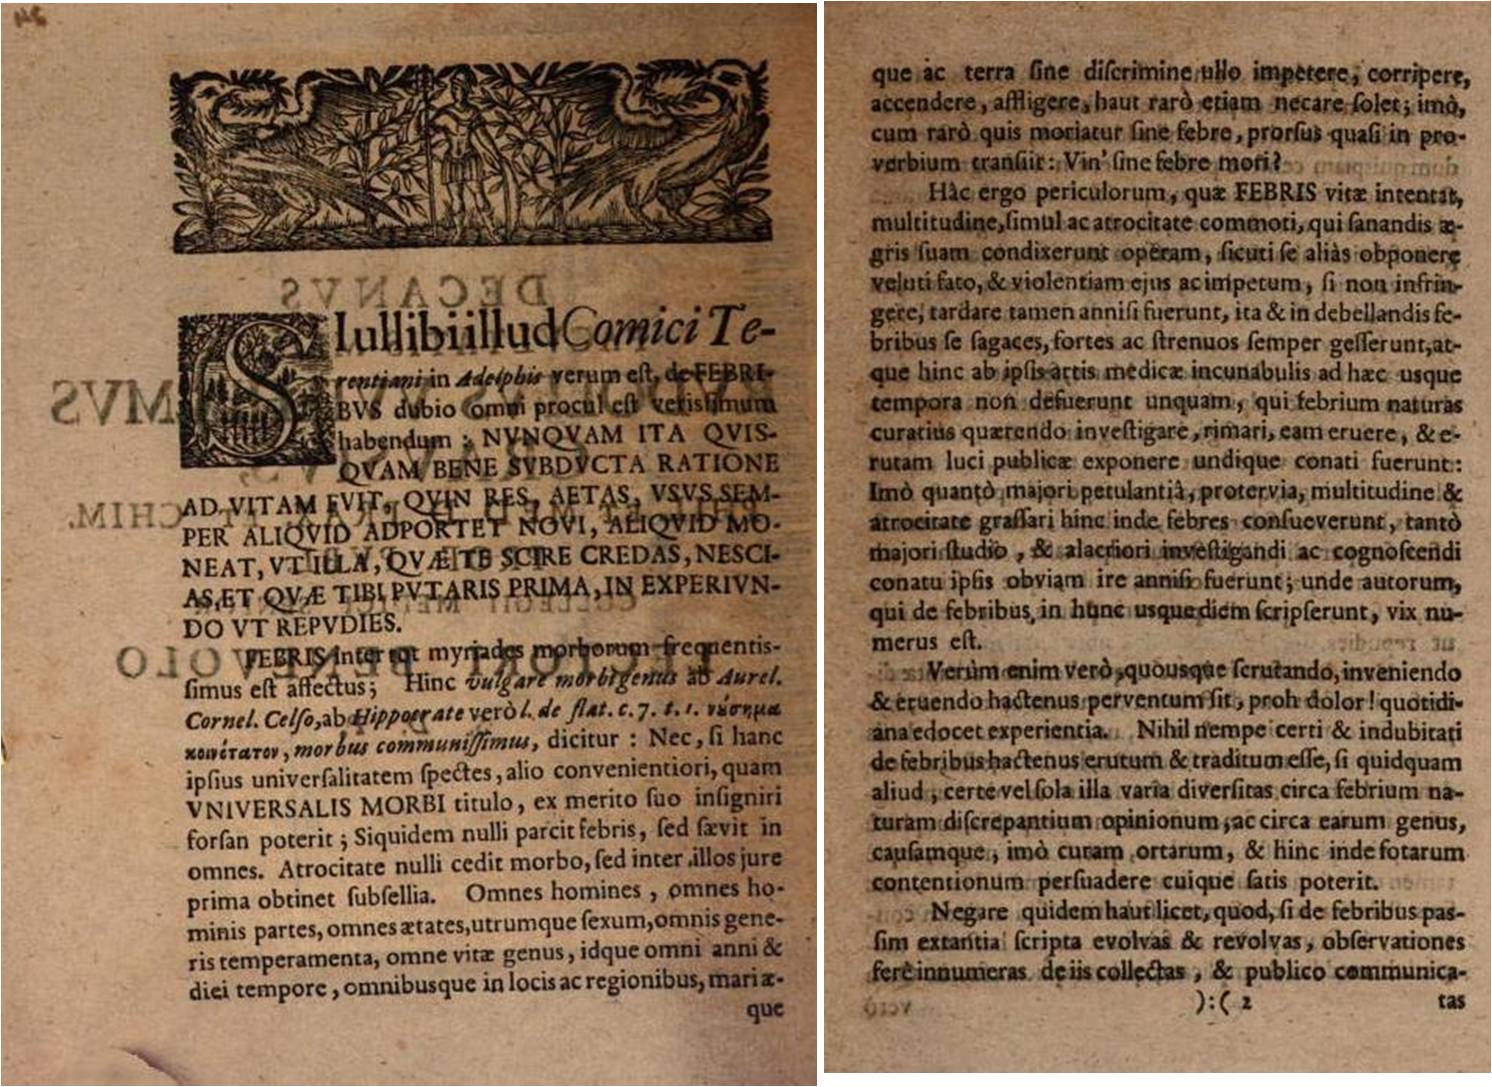 SI ullibi illud Comici Te-
rentiani in Adelphis verum est, de FEBRI-
BVS dubio omni procul est verissimum
habendum : NVNQVAM ITA QVIS-
QVAM BENE SVBDVCTA RATIONE
AD VITAM FVIT, QVIN RES, AETAS, VSVS SEM-
PER ALIQVID ADPORTET NOVI, ALIQVID MO-
NEAT, VT ILLA, QVÆ TE SCIRE CREDAS, NESCI-
AS, ET QVÆ TIBI PVTARIS PRIMA, IN EXPERIVN-
DO VT REPVDIES.
FEBRIS inter tot myriades morborum frequentis-
ſimus eſt affectus; Hinc vulgare morbi genus ab Aurel.
Cornel. Celſo, ab Hippocrate verò l. de flat. c. 7. t. 1. νόσημα
κοινότατον, morbus communiſſimus, dicitur : Nec, ſi hanc
ipſius univerſalitatem ſpectes, alio convenientiori, quam
VNIVERSALIS MORBI titulo, ex merito ſuo inſigniri
forſan poterit ; Siquidem nulli parcit febris, ſed ſævit in
omnes. Atrocitate nulli cedit morbo, ſed inter illos jure
prima obtinet ſubſellia. Omnes homines , omnes ho-
minis partes, omnes ætates, utrumque ſexum, omnis gene-
ris temperamenta, omne vitæ genus, idque omni anni &
diei tempore , omnibusque in locis ac regionibus, mari æ-
que
que ac terra ſine diſcrimine ullo impetere, corripere,
accendere, affligere, haut rarò etiam necare ſolet; imò,
cum rarò quis moriatur ſine febre, prorſus quaſi in pro-
verbium tranſiit : Vin' ſine febre mori?
Hâc ergo periculorum, quæ FEBRIS vitæ intentat,
multitudine, ſimul ac atrocitate commoti, qui ſanandis æ-
gris ſuam condixerunt operam, ſicuti ſe aliàs obponere
veluti fato, & violentiam ejus ac impetum, ſi non infrin-
gere, tardare tamen anniſi fuerunt, ita & in debellandis fe-
bribus ſe ſagaces, fortes ac ſtrenuos ſemper geſſerunt, at-
que hinc ab ipſis artis medicæ incunabulis ad hæc usque
tempora non defuerunt unquam, qui febrium naturas
curatius quærendo inveſtigare, rimari, eam eruere, & e-
rutam luci publicæ exponere undique conati fuerunt:
Imò quantò majori petulantiâ, protervia, multitudine &
atrocitate graſſari hinc inde febres conſueverunt, tantò
majori ſtudio , & alacriori inveſtigandi ac cognoſcendi
conatu ipſis obviam ire anniſi fuerunt; unde autorum,
qui de febribus in hunc usque diem ſcripſerunt, vix nu-
merus eſt.
Verùm enim verò, quousque ſcrutando, inveniendo
& eruendo hactenus perventum ſit, proh dolor! quotidi-
ana edocet experientia. Nihil nempe certi & indubitati
de febribus hactenus erutum & traditum eſſe, ſi quidquam
aliud, certe vel ſola illa varia diverſitas circa febrium na-
turam diſcrepantium opinionum, ac circa earum genus,
cauſamque, imò curam ortarum, & hinc inde fotarum
contentionum perſuadere cuique ſatis poterit.
Negare quidem haut licet, quod, ſi de febribus paſ-
ſim extantia ſcripta evolvas & revolvas, obſervationes
ferè innumeras de iis collectas , & publico communica-
):( 2 tas